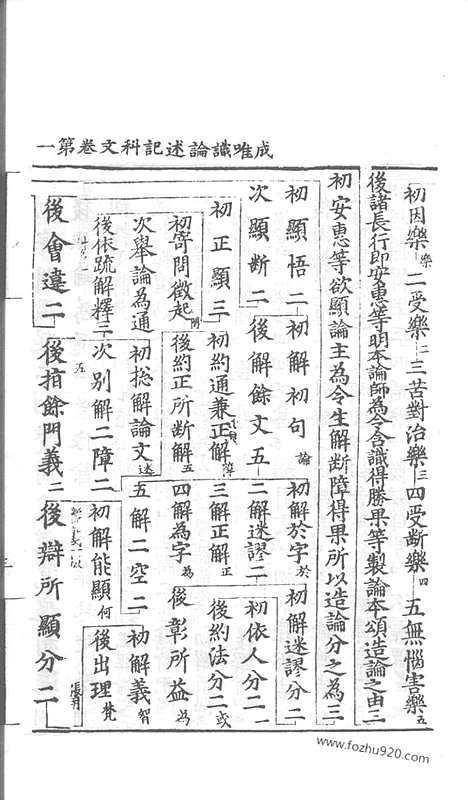 成唯識論述記科文卷第一
初因樂樂 二受樂二 三苦對治樂三 四受斷樂四 五無惱害樂五
後諸長行即安惠等明本論師為令含識得勝果等製論本頌造論之由二
初安惠等欲顯論主為令生解斷障得果所以造論分之為三
初顯悟二 初解初句論 初解於字於 初解迷謬分二
次顯斷二 後解餘文五 二解迷謬二 初依人分二一
初正顯三 初約通兼正解 三解正解正 後約法分二或
初寄問徵起 後約正所斷解五 四解為字為 後彰所益為
次舉論為通 初総解論文述 五解二空二 初解義智
後依疏解釋三 次別解二障二 初解能顯何 後出理梵
後會違二 後指餘門義二 後辯所顯分二
www.fozhu920.com